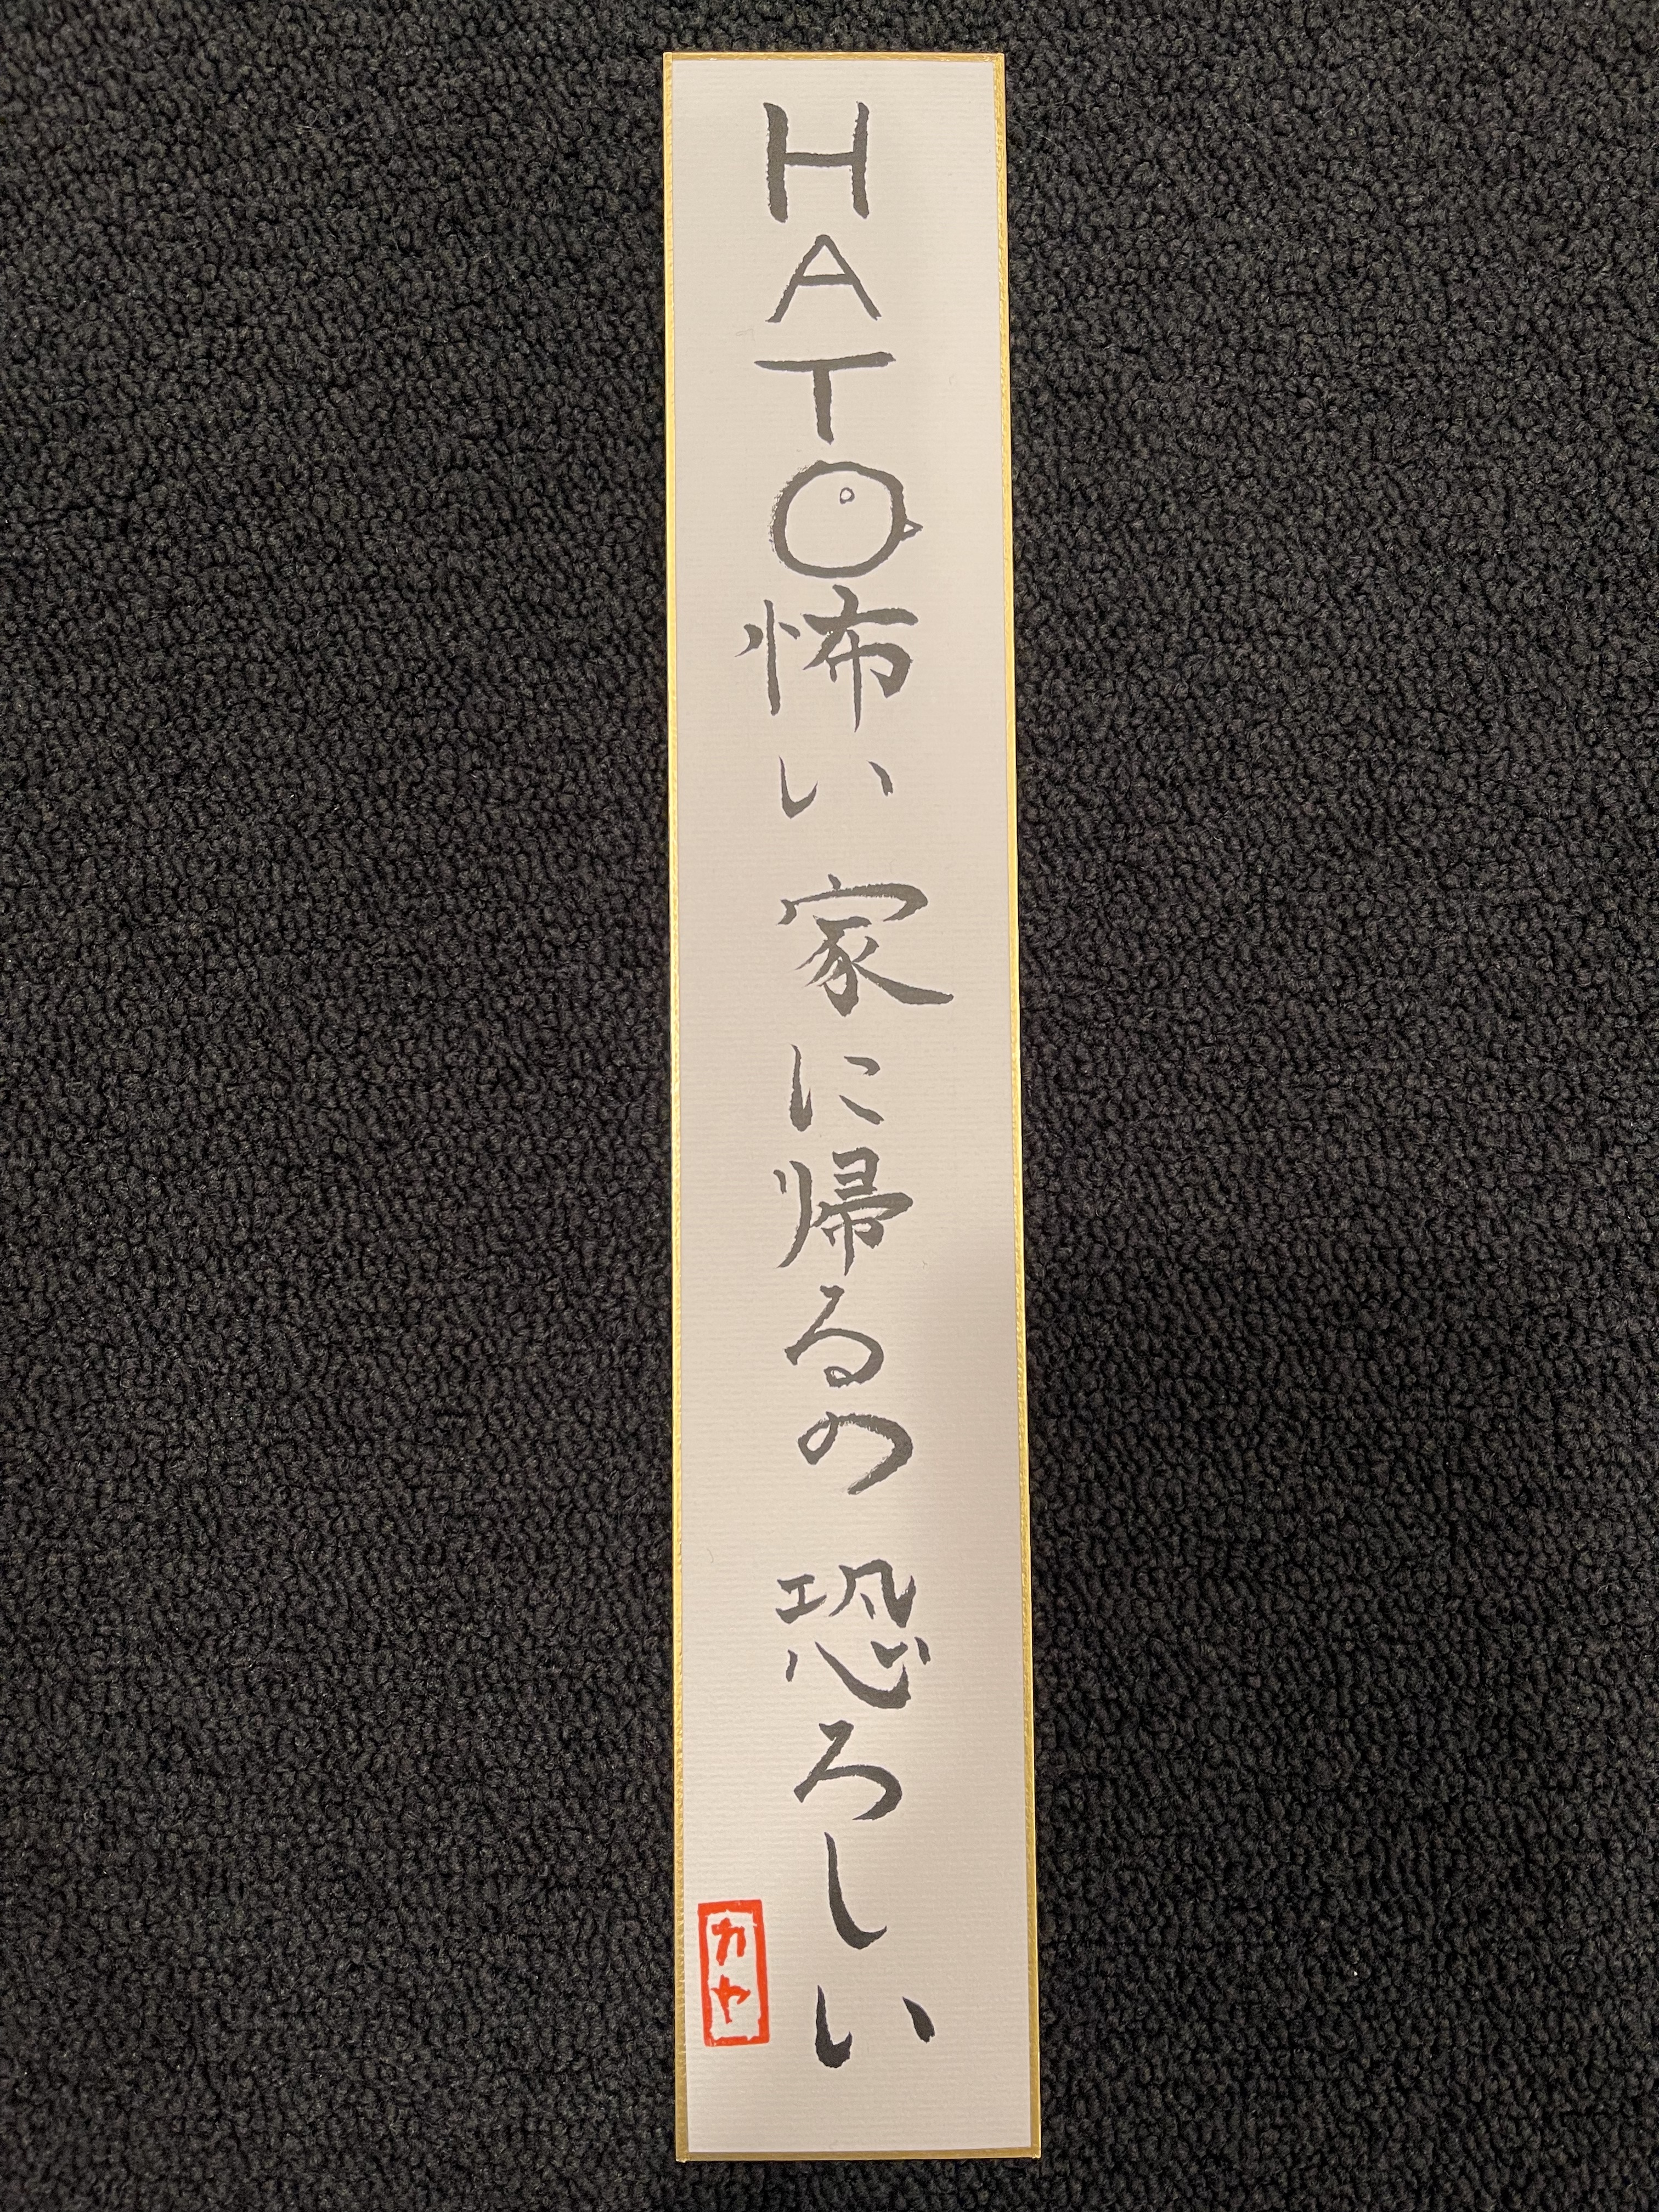 HATO怖い 家に帰るの 恐ろしい
カヤ